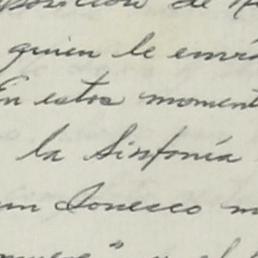 posición de
quien le envi
En estos moment
la Sinfonía
un Ionesco